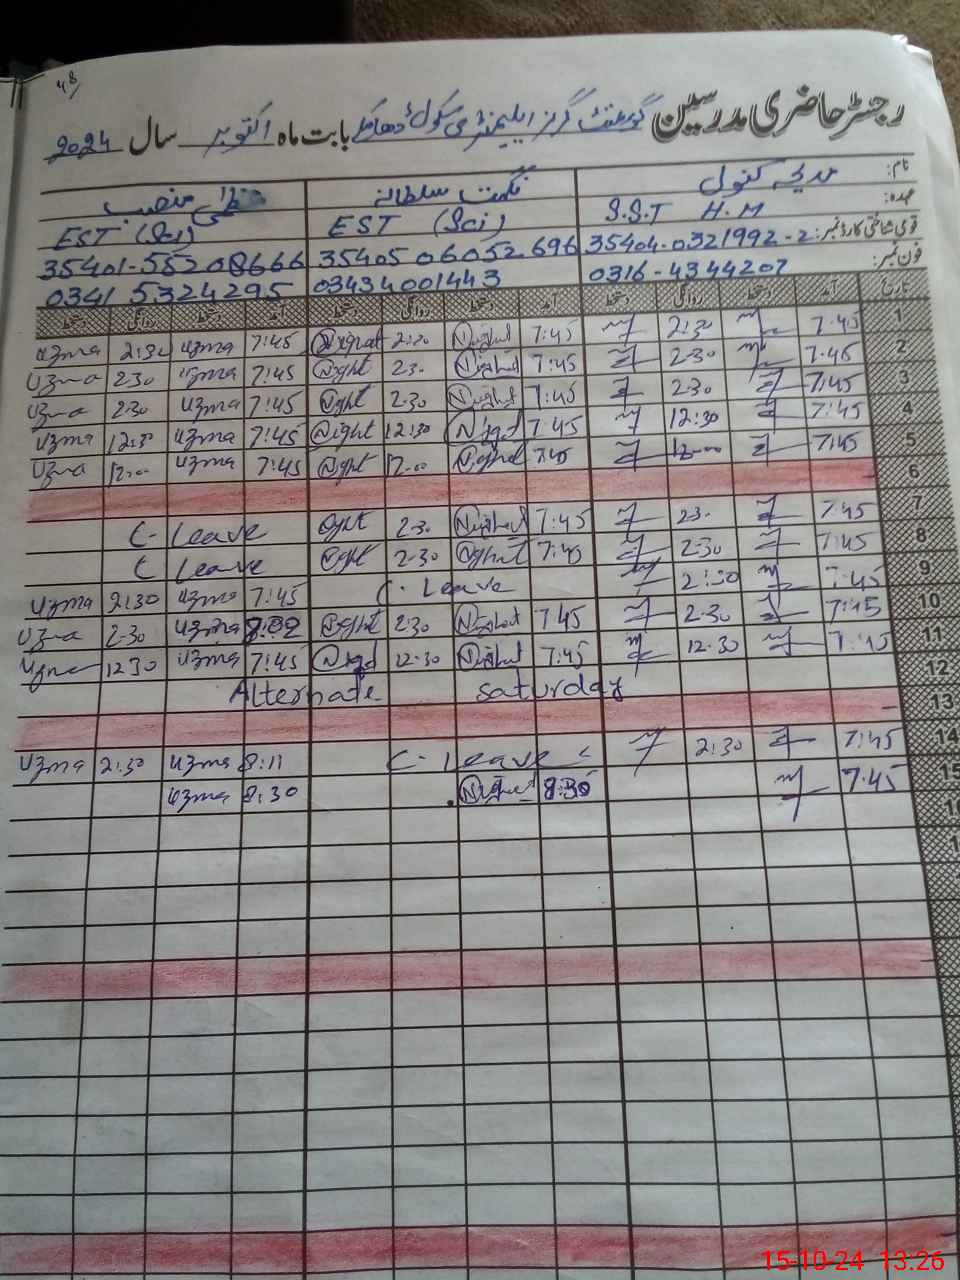 48/
رجسٹر حاضری مدرسین گورنمنٹ گرلز ایلیمنٹری سکول بابت ماہ اکتوبر سال 2024
نام: مدیحہ کنول نگہت سلطانہ
عہدہ: S.S.T H.M EST (Sci) EST (Sci)
قومی شناختی کارڈ نمبر: 35404-0321992-2 35405 06052 696 35401-55208666
فون نمبر: 0316-4344207 03434001443 0341 5324295
تاریخ آمد دستخط روانگی دستخط آمد دستخط روانگی دستخط آمد دستخط روانگی دستخط
1 7:45 2:30 7:45 2:30 7:45 uzma 2:30 uzma
2 7:45 2-30 7:45 2-30 7:45 uzma 2-30 uzma
3 7:45 2-30 7:45 2-30 7:45 uzma 2-30 uzma
4 7:45 12:30 7:45 12:30 7:45 uzma 12:30 uzma
5 7:45 12-00 7:45 12-00 7:45 uzma 12-00 uzma
6
7 7:45 2-30 7:45 2-30 C-Leave
8 7:45 2-30 7:45 2-30 C Leave
9 7:45 2:30 C-Leave 7:45 uzma 2:30 uzma
10 7:45 2-30 7:45 2-30 uzma 2-30 uzma
11 7:45 12-30 7:45 12-30 7:45 uzma 12-30 uzma
12 Alternate saturday
13
14 7:45 2:30 C-Leave 8:11 uzma 2:30 uzma
15 7:45 8:30 8:30 uzma
15-10-24 13:26